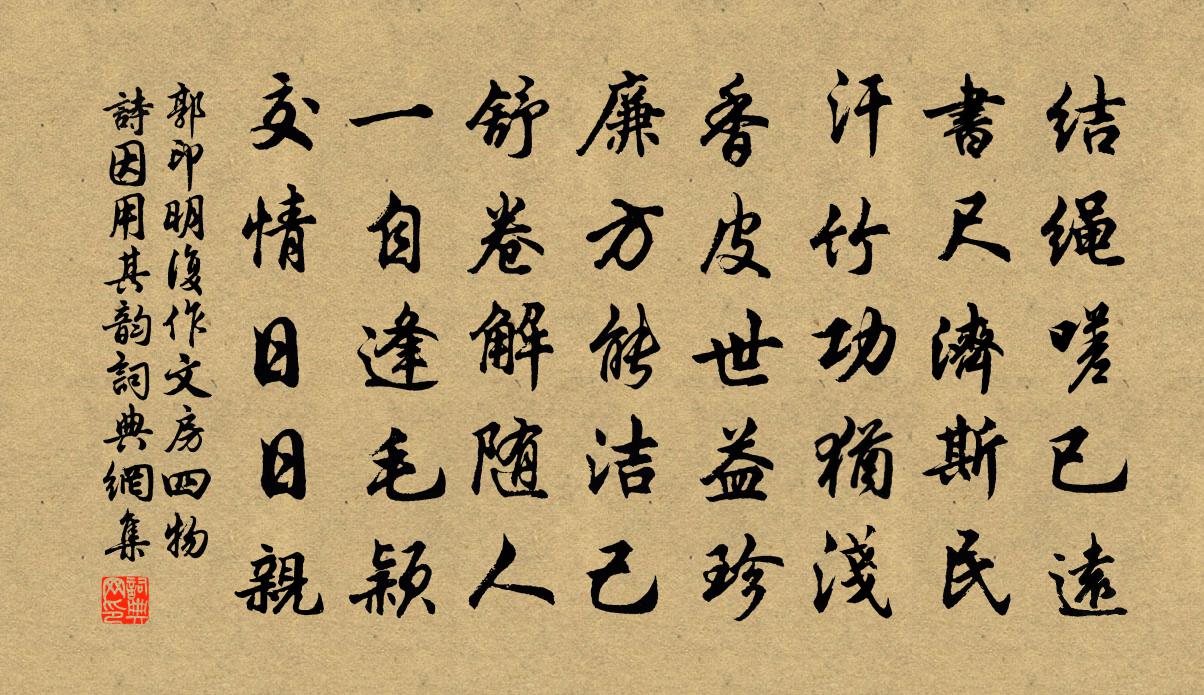 结绳嗟已远
書尺濟斯民
汗竹功猶淺
香皮世益珍
廉方能洁己
舒卷解随人
一自逢毛颖
交情日日親
郭印明復作文房四物
詩因用其韵詞典網集
詞典网印